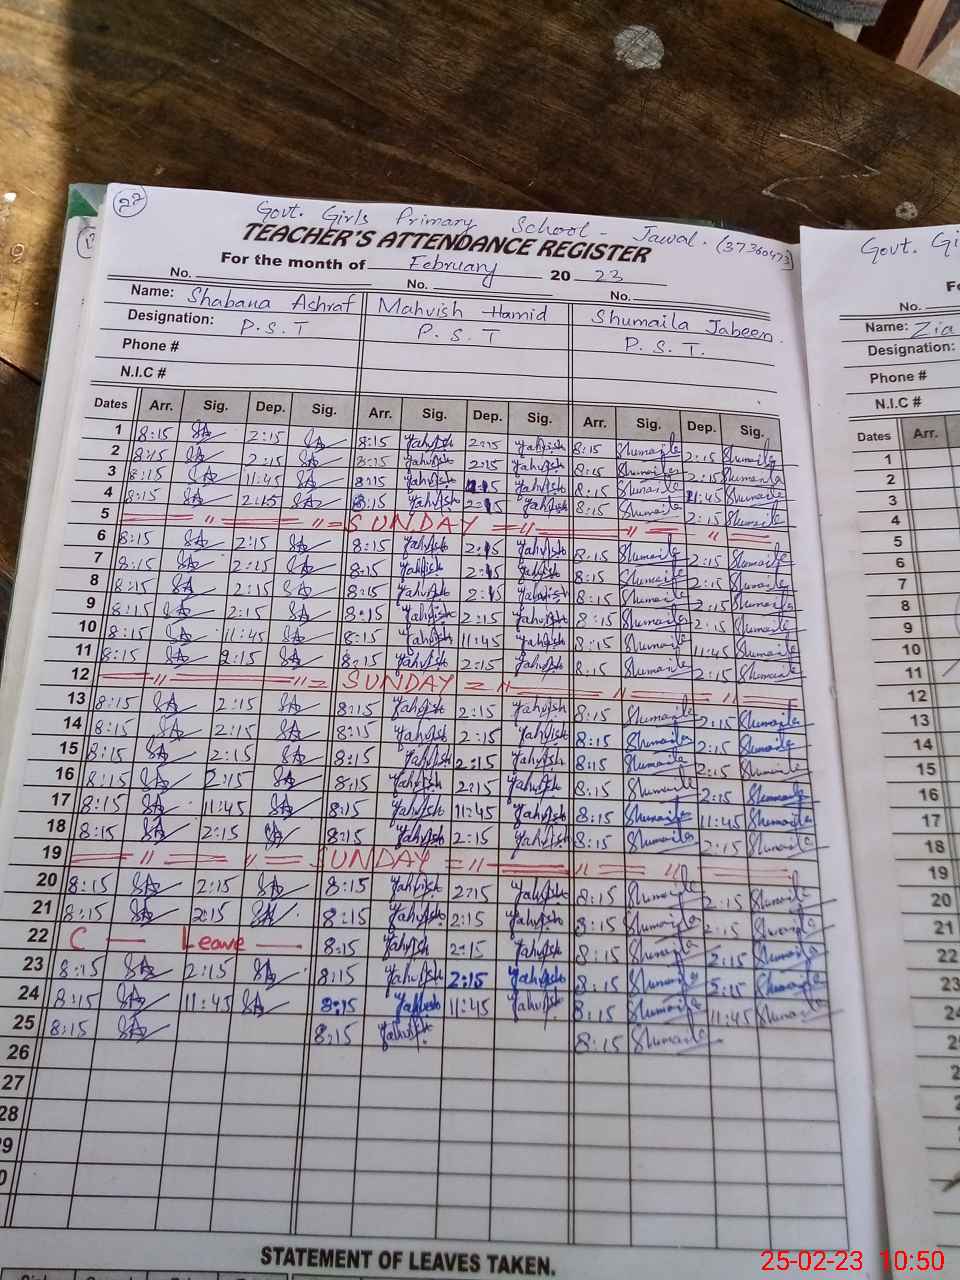 22
Govt. Girls Primary School - Jawal. (37360473)
TEACHER'S ATTENDANCE REGISTER
For the month of February 20 23
No. No. No.
Name: Shabana Ashraf Mahvish Hamid Shumaila Jabeen.
Designation: P.S.T P.S.T P.S.T.
Phone #
N.I.C #
Dates Arr. Sig. Dep. Sig. Arr. Sig. Dep. Sig. Arr. Sig. Dep. Sig.
1 8:15 SA 2:15 SA 8:15 Mahvish 2:15 Mahvish 8:15 Shumaila 2:15 Shumaila
2 8:15 SA 2:15 SA 8:15 Mahvish 2:15 Mahvish 8:15 Shumaila 2:15 Shumaila
3 8:15 SA 11:45 SA 8:15 Mahvish Mahvish 8:15 Shumaila 11:45 Shumaila
4 8:15 SA 2:15 SA 8:15 Mahvish 2:15 Mahvish 8:15 Shumaila 2:15 Shumaila
5 SUNDAY
6 8:15 SA 2:15 SA 8:15 Mahvish 2:15 Mahvish 8:15 Shumaila 2:15 Shumaila
7 8:15 SA 2:15 SA 8:15 Mahvish 2:15 Mahvish 8:15 Shumaila 2:15 Shumaila
8 8:15 SA 2:15 SA 8:15 Mahvish 2:15 Mahvish 8:15 Shumaila 2:15 Shumaila
9 8:15 SA 2:15 SA 8:15 Mahvish 2:15 Mahvish 8:15 Shumaila 2:15 Shumaila
10 8:15 SA 11:45 SA 8:15 Mahvish 11:45 Mahvish 8:15 Shumaila 11:45 Shumaila
11 8:15 SA 2:15 SA 8:15 Mahvish 2:15 Mahvish 8:15 Shumaila 2:15 Shumaila
12 SUNDAY
13 8:15 SA 2:15 SA 8:15 Mahvish 2:15 Mahvish 8:15 Shumaila 2:15 Shumaila
14 8:15 SA 2:15 SA 8:15 Mahvish 2:15 Mahvish 8:15 Shumaila 2:15 Shumaila
15 8:15 SA 2:15 SA 8:15 Mahvish 2:15 Mahvish 8:15 Shumaila 2:15 Shumaila
16 8:15 SA 2:15 SA 8:15 Mahvish 2:15 Mahvish 8:15 Shumaila 2:15 Shumaila
17 8:15 SA 11:45 SA 8:15 Mahvish 11:45 Mahvish 8:15 Shumaila 11:45 Shumaila
18 8:15 SA 2:15 SA 8:15 Mahvish 2:15 Mahvish 8:15 Shumaila 2:15 Shumaila
19 SUNDAY
20 8:15 SA 2:15 SA 8:15 Mahvish 2:15 Mahvish 8:15 Shumaila 2:15 Shumaila
21 8:15 SA 2:15 SA 8:15 Mahvish 2:15 Mahvish 8:15 Shumaila 2:15 Shumaila
22 C — Leave — 8:15 Mahvish 2:15 Mahvish 8:15 Shumaila 2:15 Shumaila
23 8:15 SA 2:15 SA 8:15 Mahvish 2:15 Mahvish 8:15 Shumaila 2:15 Shumaila
24 8:15 SA 11:45 SA 8:15 Mahvish 11:45 Mahvish 8:15 Shumaila 11:45 Shumaila
25 8:15 SA 8:15 Mahvish 8:15 Shumaila
26
27
28
29
STATEMENT OF LEAVES TAKEN.
Govt.
No.
Name: Zia
Designation:
Phone #
N.I.C #
Dates Arr.
1
2
3
4
5
6
7
8
9
10
11
12
13
14
15
16
17
18
19
20
21
22
23
25-02-23 10:50